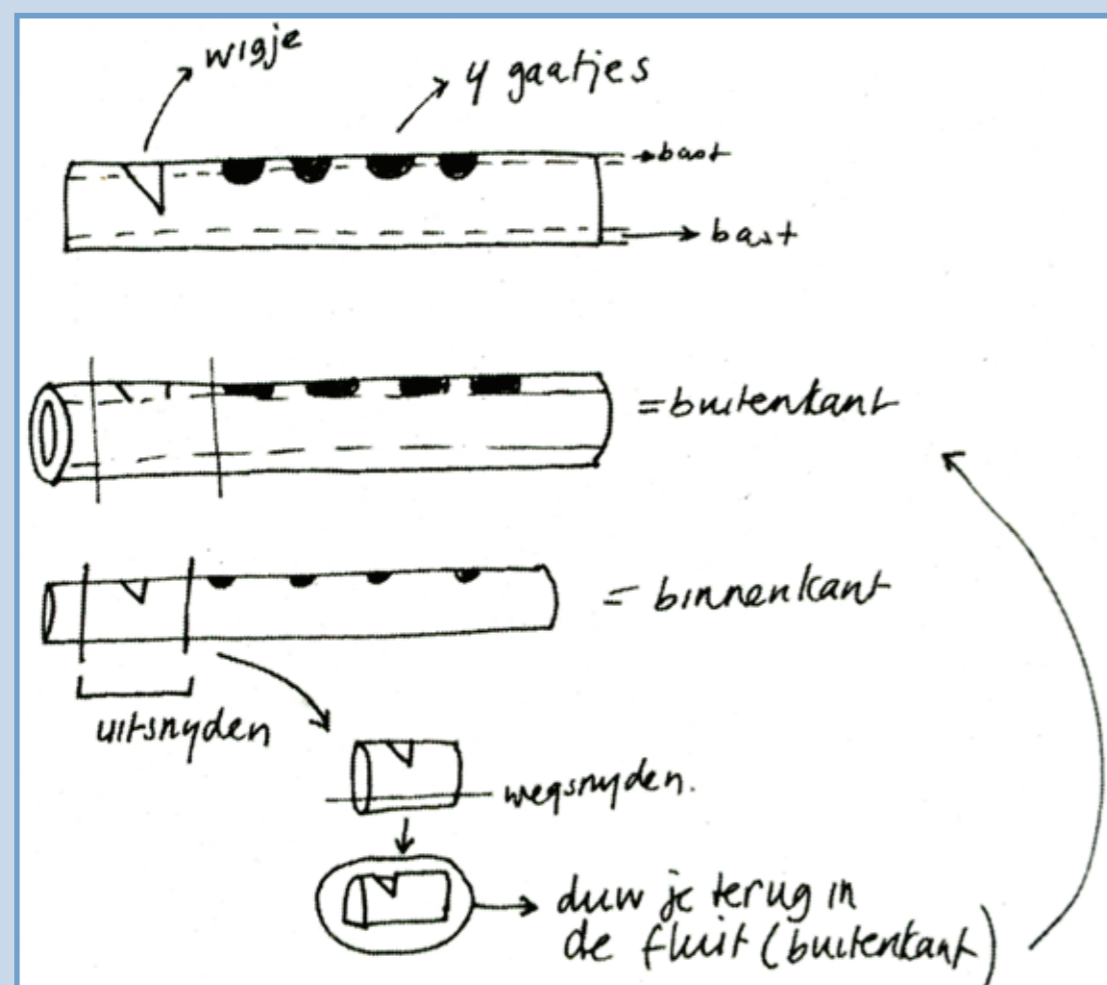 wigje
4 gaatjes
bast
bast
= buitenkant
= binnenkant
uitsnyden
wegsnyden.
duw je terug in
de fluit (buitenkant)